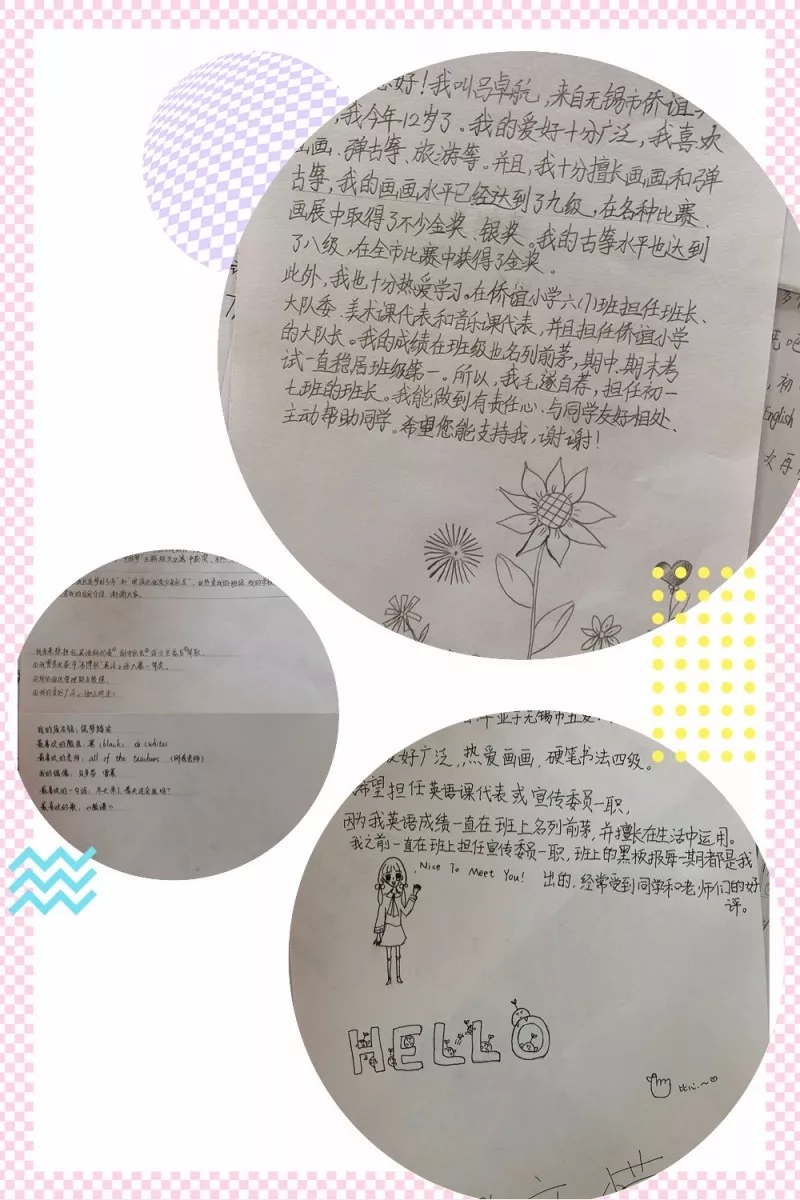 好！我叫吕卓航，来自无锡市侨谊
，我今年12岁了。我的爱好十分广泛，我喜欢
画、弹古筝、旅游等。并且，我十分擅长画画和弹
古筝，我的画画水平已经达到了九级，在各种比赛、
画展中取得了不少金奖、银奖。我的古筝水平也达到
了八级，在全市比赛中获得了金奖。
此外，我也十分热爱学习。在侨谊小学六(1)班担任班长、
大队委、美术课代表和音乐课代表，并且担任侨谊小学
的大队长。我的成绩在班级也名列前茅，期中、期末考
试一直稳居班级第一。所以，我毛遂自荐，担任初一
七班的班长。我能做到有责任心、与同学友好相处、
主动帮助同学。希望您能支持我，谢谢！
吧
初
English
次再
我的座右铭：筑梦踏实
最喜欢的颜色：黑(black)、白(white)
最喜欢的老师：all of the teachers
我的偶像：贝多芬
最喜欢的一句话：冬天来了，春天还会远吗？
毕业于无锡市五爱
好广泛，热爱画画，硬笔书法四级。
希望担任英语课代表或宣传委员一职，
因为我英语成绩一直在班上名列前茅，并擅长在生活中运用。
我之前一直在班上担任宣传委员一职，班上的黑板报每一期都是我
Nice To Meet You! 出的，经常受到同学和老师们的好
评。
HELLO
比心~